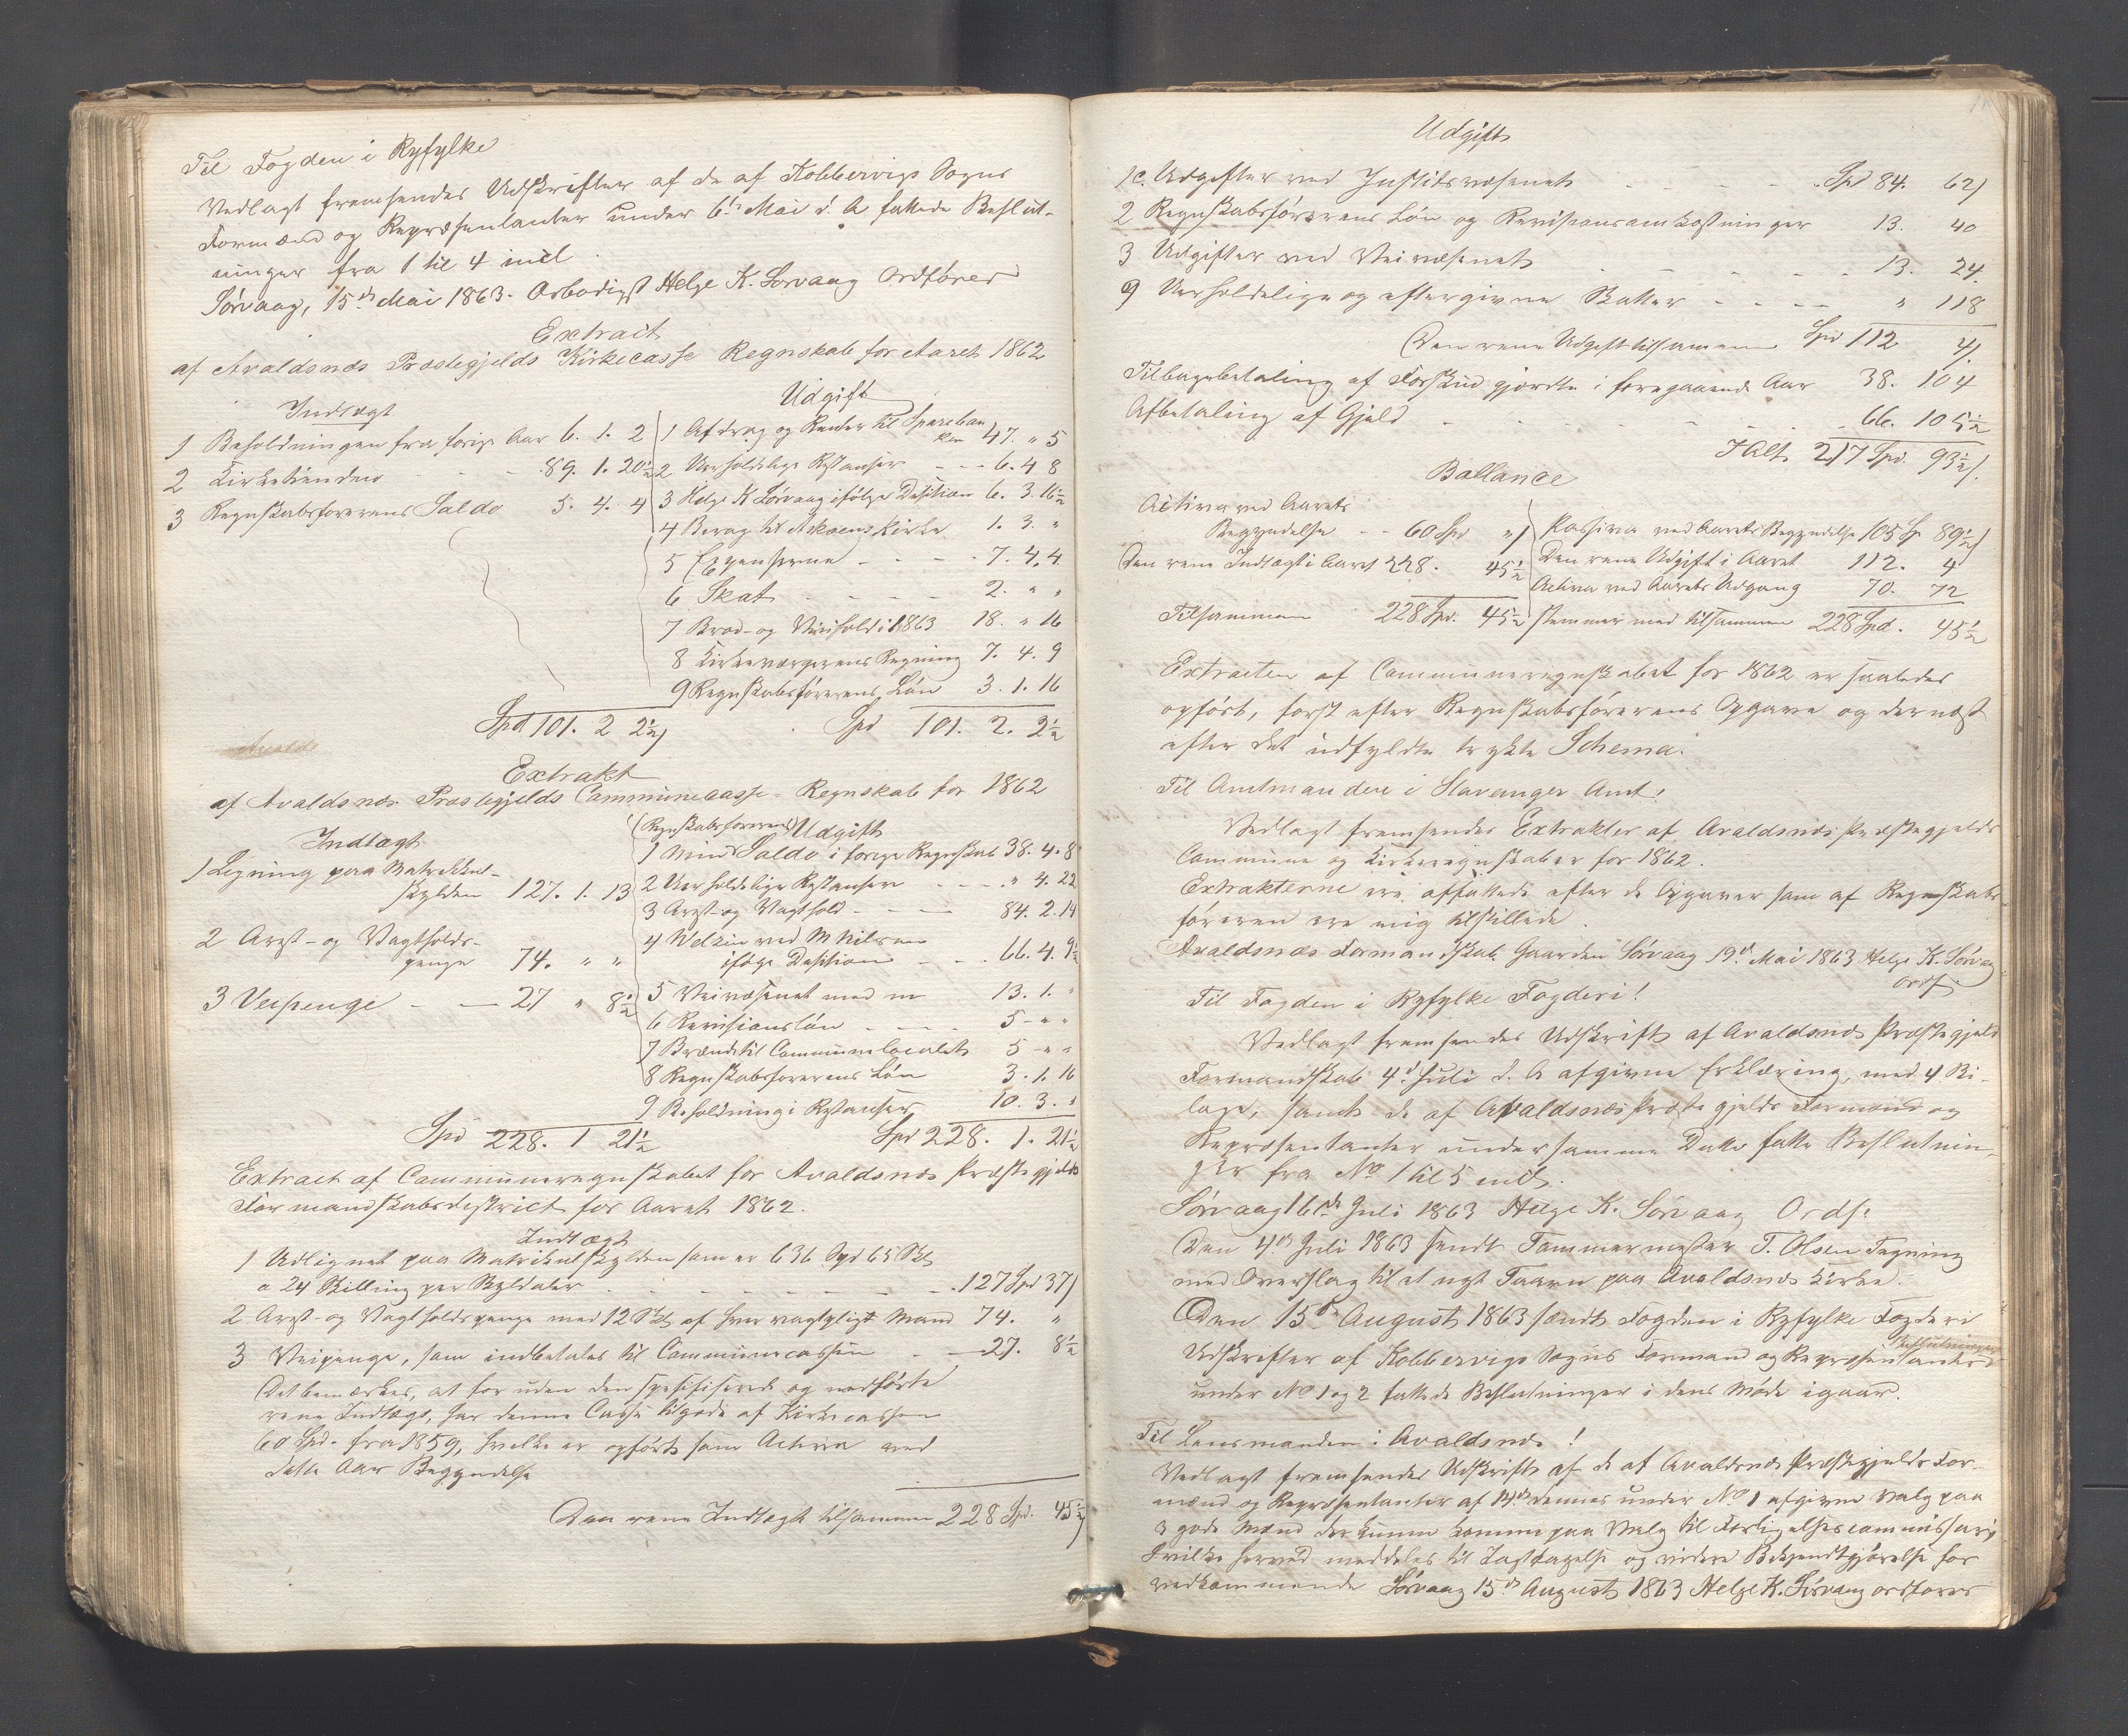 Til Fogden i Ryfylke
Vedlagt fremsendes Udskrifter af de af Kobbervigs Sogns
Formænd og Repræsentanter under 6te Mai d. A fattede Beslut-
ninger fra 1 til 4 incl
Sørvaag, 15de Mai 1863. Ærbødigst Helge K. Sørvaag Ordfører
Extract
af Avaldsnæs Præstegjelds Kirkecasse Regnskab for Aaret 1862
Indtægt
1 Beholdningen fra forige Aar 6. 1. 2
2 Kirketienden - - - 89. 1. 20½
3 Regnskabsførerens Saldo 5. 4. 4
Spd 101. 2 2½
Udgift
1 Afdrag og Renter til Sparebanken 47. " 5
2 Uerholdelige Restanser - - - 6. 4 8
3 Helge K Sørvaag ifølge Desition 6. 3. 16½
4 Bevog til Askøens Kirke 1. 3. "
5 Expenserne - - - 7. 4. 4
6 Skat - - - - 2. " "
7 Brød- og Viinhold i 1863 18. " 16
8 Kirkeværgerens Regning 7. 4. 9
9 Regnskabsførerens Løn 3. 1. 16
Spd 101. 2. 2½
Avalds
Extrakt
af Avaldsnæs Præstegjelds Communecasse-Regnskab for 1862
Indtægt
1 Ligning paa Matrikkul-
skylden 127. 1. 13
2 Arest- og Vagtholds-
penge 74. " "
3 Veipenge - - 27 " 8½
Spd 228. 1 21½
(Regnskabsførerens) Udgift
1 Mind Saldo i forige Regnskab 38. 4. 8
2 Uerholdelige Restanser - - - " 4. 22
3 Arest- og Vagthold - - - 84. 2. 14
4 ved M Nilsen
ifølge Desition - - . 66. 4. 9½
5 Veivæsenet med m 13. 1. "
6 Revisionsløn - - - 5 - " "
7 Brænde til Communelocalet 5 - " "
8 Regnskabsførerens Løn 3. 1. 16
9 Beholdning i Restanser 10. 3. "
Spd 228. 1. 21½
Extract af Communeregnskabet for Avaldsnæs Præstegjelds
Formandskabsdistrict for Aaret 1862.
Indtægt
1 Udlignet paa Matrikulskylden som er 636 Spd 65 Sk
a 24 Skilling per Skyldaler - - - - - 127 Spd 37)
2 Arest- og Vagtholdspenge med 12 Sk af hver vagtpligt Mand 74. "
3 Veipenge, som indbetales til Communecassen - - 27. 8½
Det bemærkes, at for uden den spesifiserede og anførte
rene Indtægt, har denne Casse tilgode af Kirkecassen
60 Spd. fra 1859, hvilke er opført som Activa ved
dette Aars Begyndelse
Den rene Indtægt tilsammen 228 Spd. 45½)
Udgift
1c. Udgifter ved Justidsvæsenet - - - - Spd 84. 62)
2 Regnskabsførerens Løn og Revisionsomkostninger 13. 40
3 Udgifter ved Veivæsenet - - - - 13. 24.
9 Uerholdelige og eftergivne Skatter - - - - " 118
Den rene Udgift tilsamen Spd 112 4).
Tilbagebetaling af Forskud gjordte i foregaaende Aar 38. 104
Afbetaling af Gjeld - - - - - 66. 105½
I Alt 217 Spd. 93½).
Ballance
Activa ved Aarets
Begyndelse - - 60 Spd ")
Den rene Indtægt i Aaret 228. 45½
Tilsammen 228 Spd. 45½
Passiva ved Aarets Begyndelse 105 Sp 89½)
Den rene Udgift i Aaret 112. 4
Activa ved Aarets Udgang 70. 72
stemmer med tilsammen 228 Spd. 45½
Extracten af Communeregnskabet for 1862 er saaledes
opført, først efter Regnskabsførerens Opgave og dernæst
efter det udfyldte trykte Schema.
Til Amtmanden i Stavanger Amt!
Vedlagt fremsendes Extrakter af Avaldsnæs Præstegjelds
Commune og Kirkeregnskaber for 1862.
Extrakterne ere affattede efter de Opgaver som af Regnskabs
føreren ere mig tilstillede.
Avaldsnæs Formandskab Gaarden Sørvaag 19de Mai 1863 Helge K. Sørvaag
Ordf.
Til Fogden i Ryfylke Fogderi!
Vedlagt fremsendes Udskrift af Avaldsnæs Præstegjeld
Formandskab 4de Juli d. A afgivne Erklæring, med 4 Bi-
lage, samt de af Avaldsnæs Præstegjelds Formænd og
Repræsentanter under samme Dato fatte Beslutnin-
ger fra No 1 til 5 incl.
Sørvaag 16de Juli 1863 Helge K. Sørvaag Ordf.
Den 4de Juli 1863 sendt Tømmermester T. Olsen Tegning
med Overslag til et nyt Taarn paa Avaldsnæs Kirke.
Den 15de August 1863 sendt Fogden i Ryfylke Fogderi
Udskrifter af Kobbervigs Sogns Formænd og Repræsentanter
Beslutninger
under No 1 og 2 fattede Beslutninger i dens Møde igaar.
Til Lensmanden i Avaldsnæs!
Vedlagt fremsendes Udskrift af de af Avaldsnæs Præstegjelds For-
mænd og Repræsentanter af 14de dennes under No 1 afgivne Valg paa
3 gode Mænd der kunne komme paa Valg til Forligelsescommissair
hvilke herved meddeles til Iagttagelse og videre Bekjendtgjørelse for
vedkommende Sørvaag 15de August 1863 Helge K. Sørvaag ordfører